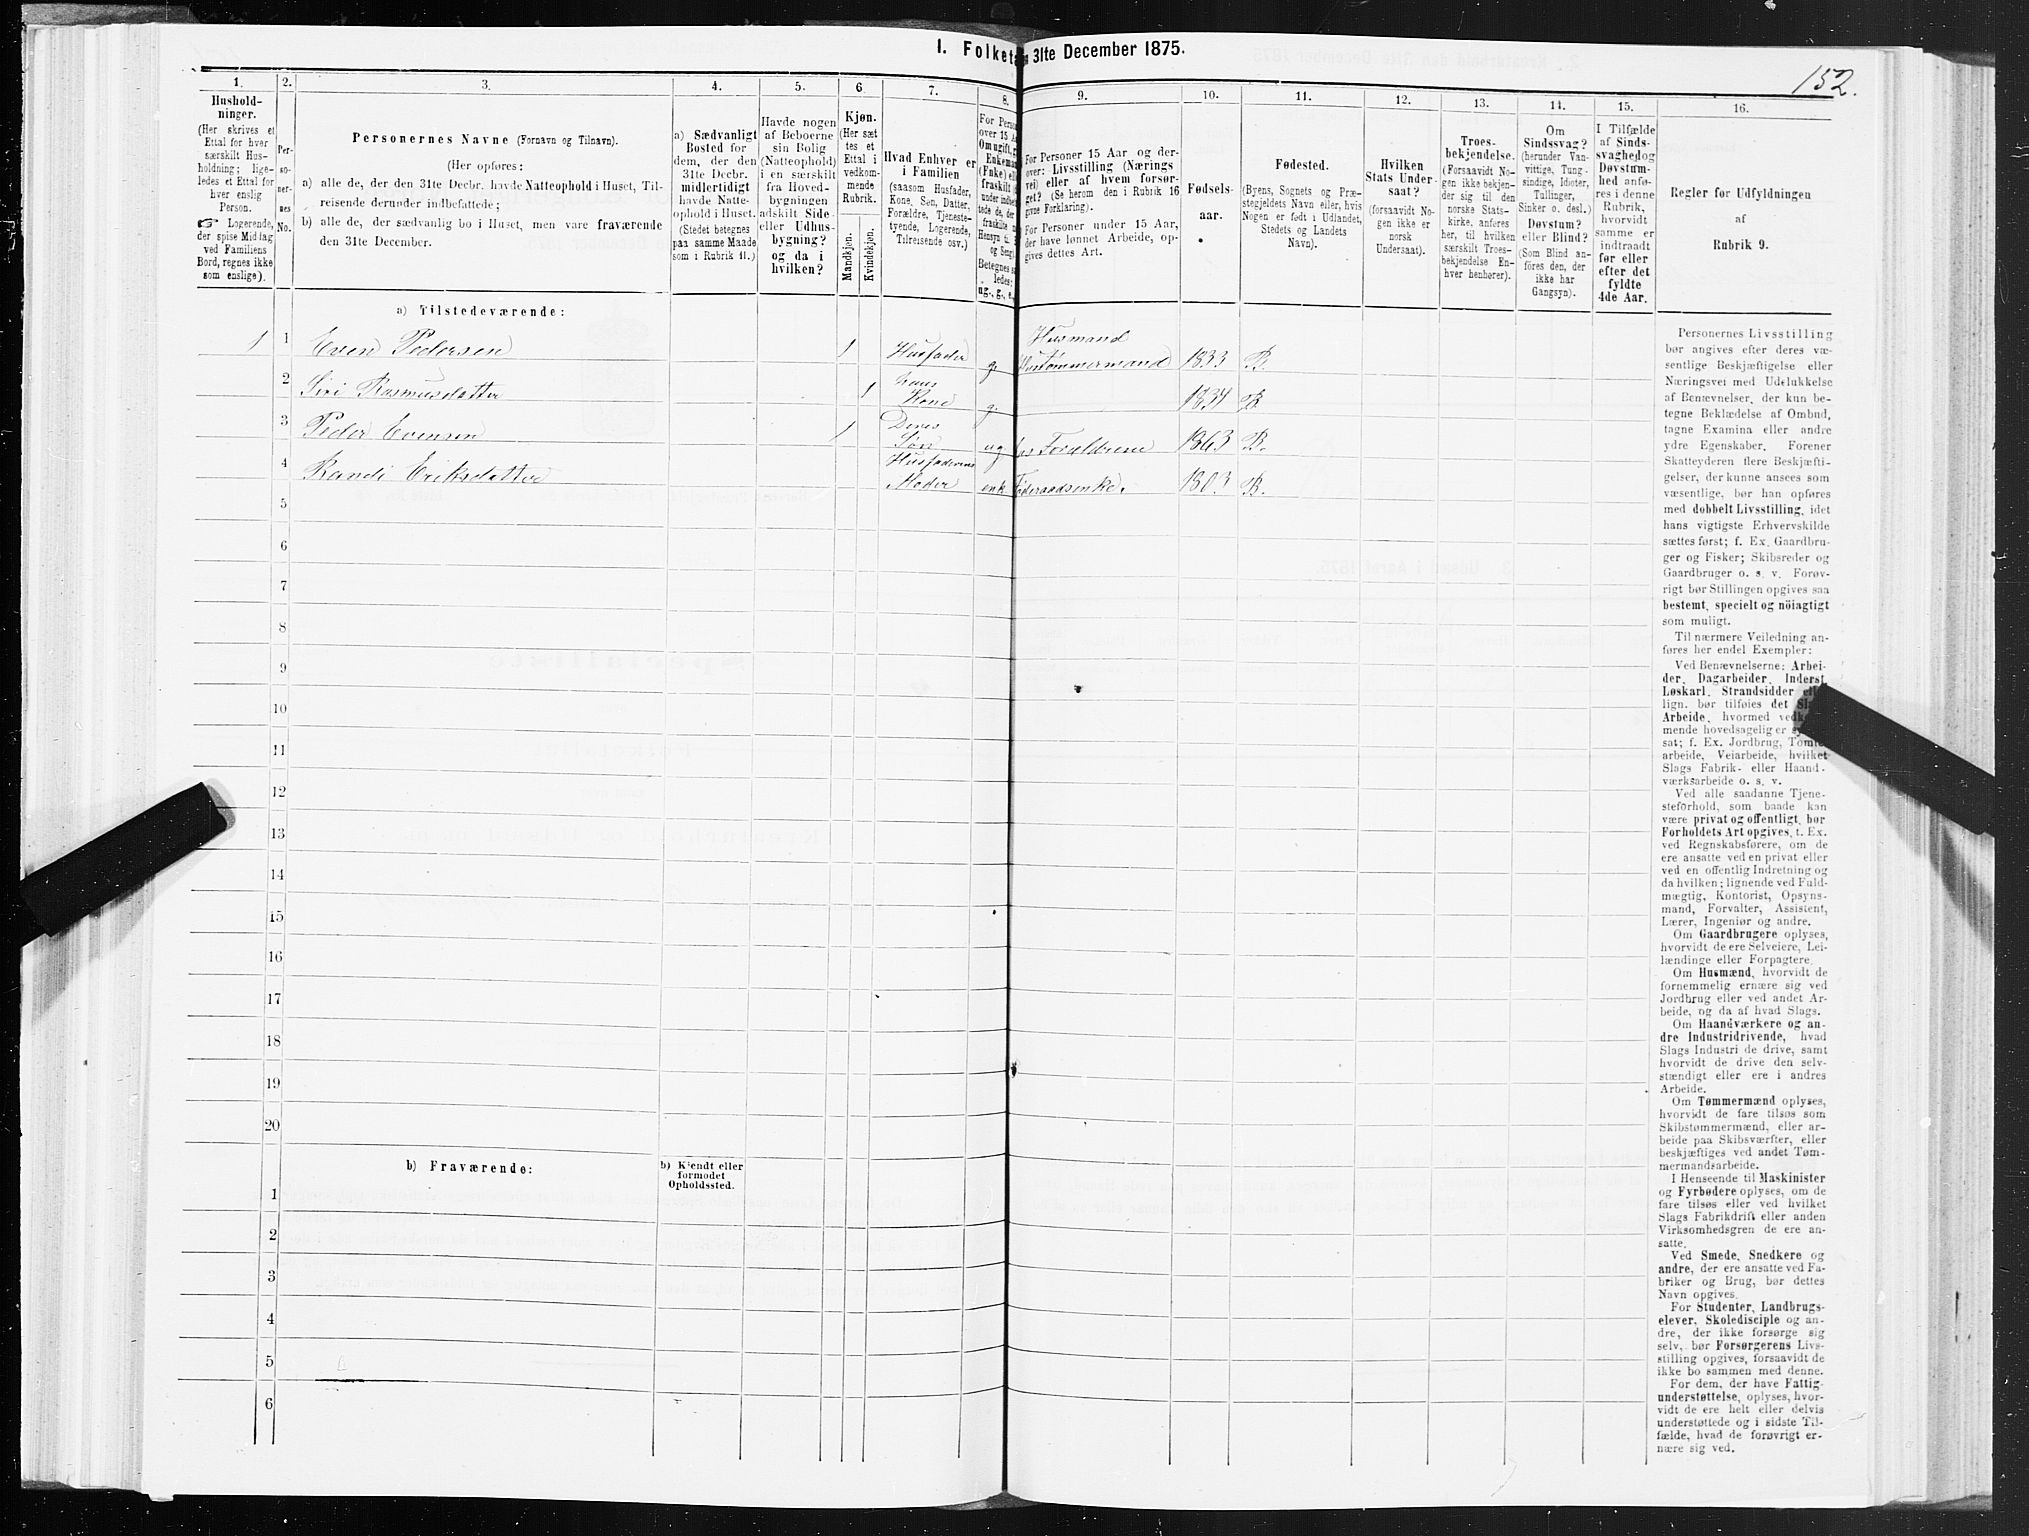 I. Folketa 31te December 1875.
152.
1.
Hushold-
ninger.
(Her skrives et
Ettal for hver
særskilt Hus-
holdning; lige-
ledes et Ettal for
hver enslig
Person.
Logerende,
der spise Middag
ved Familiens
Bord, regnes ikke
som enslige).
2.
Per-
so-
ner-
nes
No.
3.
Personernes Navne (Fornavn og Tilnavn).
(Her opføres:
a) alle de, der den 31te Decbr. havde Natteophold i Huset, Til-
reisende derunder indbefattede;
b) alle de, der sædvanlig bo i Huset, men vare fraværende
den 31te December.
4.
a) Sædvanligt
Bosted for
dem, der den
31te Decbr.
midlertidigt
havde Natte-
ophold i Huset.
(Stedet betegnes
paa samme Maade
som i Rubrik 11.)
5.
Havde nogen
af Beboerne
sin Bolig
(Natteophold)
i en særskilt
fra Hoved-
bygningen
adskilt Side-
eller Udhus-
bygning?
og da i
hvilken?
6.
Kjøn.
(Her sæt
tes et
Ettal i
vedkom-
mende
Rubrik.
Mandkjøn.
Kvindekjøn.
7.
Hvad Enhver er
i Familien
(saasom Husfader,
Kone, Søn, Datter,
Forældre, Tjeneste-
tyende, Logerende,
Tilreisende osv.)
8.
For Person
over 15 A
Om ugift, g
Enkema
(Enke) ell
fraskilt
under indbe
tede de, der
fraskilte
Hensyn ti
og Seng).
Betegnes s
ledes:
ug., g., e.
9.
For Personer 15 Aar og der-
over: Livsstilling (Nærings-
vei) eller af hvem forsør-
get? (Se herom den i Rubrik 16
givne Forklaring).
For Personer under 15 Aar,
der have lønnet Arbeide, op-
gives dettes Art.
10.
Fødsels-
aar.
11.
Fødested.
(Byens, Sognets og Præ-
stegjeldets Navn eller, hvis
Nogen er født i Udlandet,
Stedets og Landets
Navn).
12.
Hvilken
Stats Under-
saat?
(forsaavidt No-
gen ikke er
norsk
Undersaat).
13.
Troes-
bekjendelse.
(Forsaavidt No-
gen ikke bekjen-
der sig til den
norske Stats-
kirke, anføres
her, til hvilken
særskilt Troes-
bekjendelse En-
hver henhører).
14.
Om
Sindssvag?
(herunder Van-
vittige, Tung-
sindige, Idioter,
Tullinger,
Sinker o. desl.)
Døvstum?
eller Blind?
(Som Blind an-
føres den, der
ikke har
Gangsyn).
15.
I Tilfælde
af Sinds-
svaghed og
Døvstum-
hed anfø-
res i denne
Rubrik,
hvorvidt
samme er
indtraadt
før eller
efter det
fyldte
4de Aar.
16.
Regler for Udfyldningen
af
Rubrik 9.
a) Tilstedeværende:
1 1 Even Pedersen 1 Husfader g. Husmand Tømmermand 1833 B.
2 Siri Rasmusdatter 1 hans Kone g. 1834 B.
3 Peder Evensen 1 Deres Søn ug hos Forældrene 1863 B.
4 Randi Eriksdatter Husfaderens Moder enk Føderaadsenke. 1803 B.
5
6
7
8
9
10
11
12
13
14
15
16
17
18
19
20
b) Fraværende:
b) Kjendt eller
formodet
Opholdssted.
1
2
3
4
5
6
Personernes Livsstilling
bør angives efter deres væ-
sentlige Beskjæftigelse eller
Næringsvei med Udelukkelse
af Benævnelser, der kun be-
tegne Beklædelse af Ombud,
tagne Examina eller andre
ydre Egenskaber. Forener
Skatteyderen flere Beskjæfti-
gelser, der kunne ansees som
væsentlige, bør han opføres
med dobbelt Livsstilling, idet
hans vigtigste Erhvervskilde
sættes først; f. Ex. Gaardbru-
ger og Fisker; Skibsreder og
Gaardbruger o. s. v. Forøv-
rigt bør Stillingen opgives saa
bestemt, specielt og nöiagtigt
som muligt.
Til nærmere Veiledning an-
føres her endel Exempler:
Ved Benævnelserne: Arbei-
der, Dagarbeider, Inderst,
Løskarl, Strandsidder eller
lign. bør tilføies det Slags
Arbeide, hvormed vedkom-
mende hovedsagelig er syssel-
sat; f. Ex. Jordbrug, Tømmer-
arbeide, Veiarbeide, hvilket
Slags Fabrik- eller Haand-
værksarbeide o. s. v.
Ved alle saadanne Tjene-
steforhold, som baade kan
være privat og offentligt, bør
Forholdets Art opgives, t. Ex.
ved Regnskabsførere, om de
ere ansatte ved en privat eller
ved en offentlig Indretning og
da hvilken; lignende ved Fuld-
mægtig, Kontorist, Opsyns-
mand, Forvalter, Assistent,
Lærer, Ingeniør og andre.
Om Gaardbrugere oplyses,
hvorvidt de ere Selveiere, Lei-
lændinge eller Forpagtere.
Om Husmænd, hvorvidt de
fornemmelig ernære sig ved
Jordbrug eller ved andet Ar-
beide, og da af hvad Slags.
Om Haandværkere og an-
dre Industridrivende, hvad
Slags Industri de drive, samt
hvorvidt de drive den selv-
stændigt eller ere i andres
Arbeide.
Om Tømmermænd oplyses,
hvorvidt de fare tilsøs som
Skibstømmermænd, eller ar-
beide paa Skibsværfter, eller
beskjæftiges ved andet Tøm-
mermandsarbeide.
I Henseende til Maskinister
og Fyrbødere oplyses, om de
fare tilsøs eller ved hvilket
Slags Fabrikdrift eller anden
Virksomhedsgren de ere an-
satte.
Ved Smede, Snedkere og
andre, der ere ansatte ved Fa-
briker og Brug, bør dettes
Navn opgives.
For Studenter, Landbrugs-
elever, Skoledisciple og an-
dre, der ikke forsørge sig
selv, bør Forsørgerens Livs-
stilling opgives, forsaavidt de
ikke bo sammen med denne.
For dem, der have Fattig-
understøttelse, oplyses, hvor-
vidt de ere helt eller delvis
understøttede og i sidste Til-
fælde, hvad de forøvrigt er-
nære sig ved.